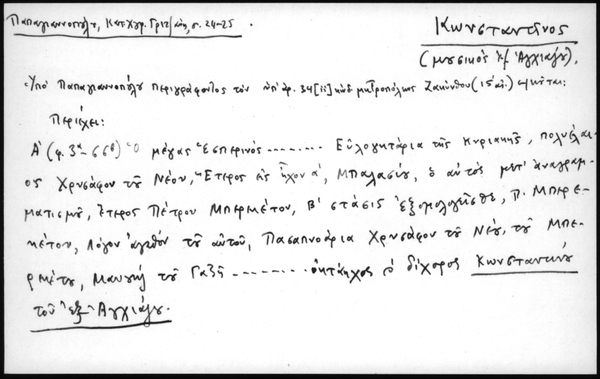 Παπαγιαννοπούλου, Κατ. Χγρ. σ. 24-25
Κωνσταντῖνος
(μουσικὸς ἐξ Ἀγχιάλου).
Ὑπὸ Παπαγιαννοπούλου περιγράφοντος τὸν ὑπ' ἀρ. 34[ii] κώδ. μητροπόλεως Ζακύνθου (15 αἰ.) σημειοῦται:
Περιέχει:
Α' (φ. 3α - 66β) Ὁ μέγας Ἑσπερινὸς ........ Εὐλογητάρια τῆς Κυριακῆς, πολυέλαι-
ος Χρυσάφου τοῦ Νέου, Ἕτερος εἰς ἦχον α', Μπαλασίου, ὁ αὐτὸς μετ' ἀναγραμ-
ματισμοῦ, ἕτερος Πέτρου Μπερεκέτου, Β' στάσις ἐξομολογεῖσθε, Π. Μπερε-
κέτου, Λόγον ἀγαθὸν τοῦ αὐτοῦ, Πασαπνοάρια Χρυσάφου τοῦ Νέου, τοῦ Μπε-
ρεκέτου, Μανουὴλ τοῦ Γαζῆ ........ ὀκτάηχος ὁ δίχορος Κωνσταντίνου
τοῦ ἐξ Ἀγχιάλου.